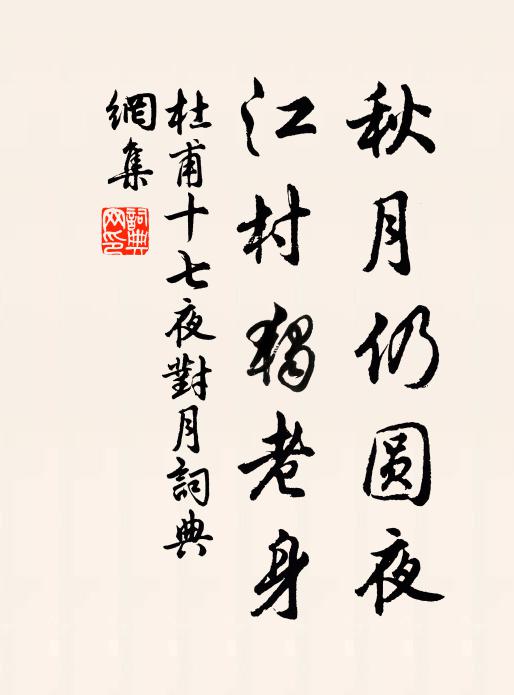 秋月仍圆夜
江村獨老身
杜甫十七夜對月詞典
網集
詞典
网印